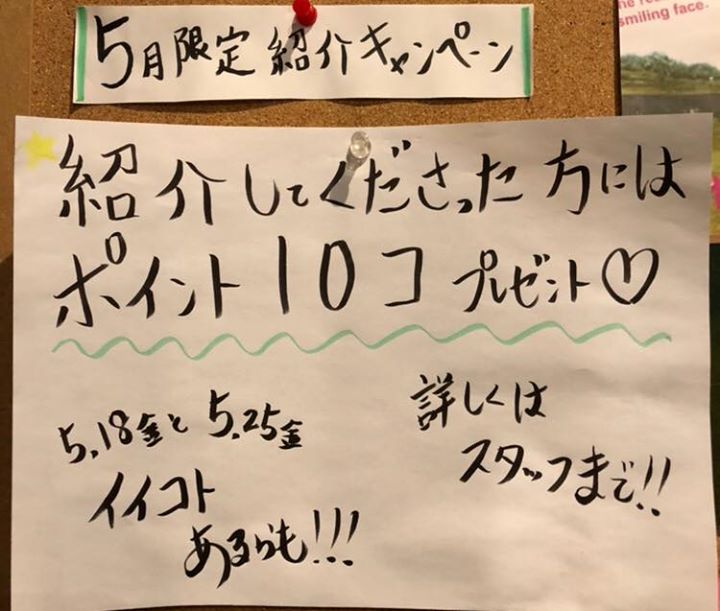 5月限定紹介キャンペーン
he re
smiling face.
紹介してくださった方には
ポイント10コ プレゼント♡
5.18金と5.25金
イイコト
あるかも!!!
詳しくは
スタッフまで!!